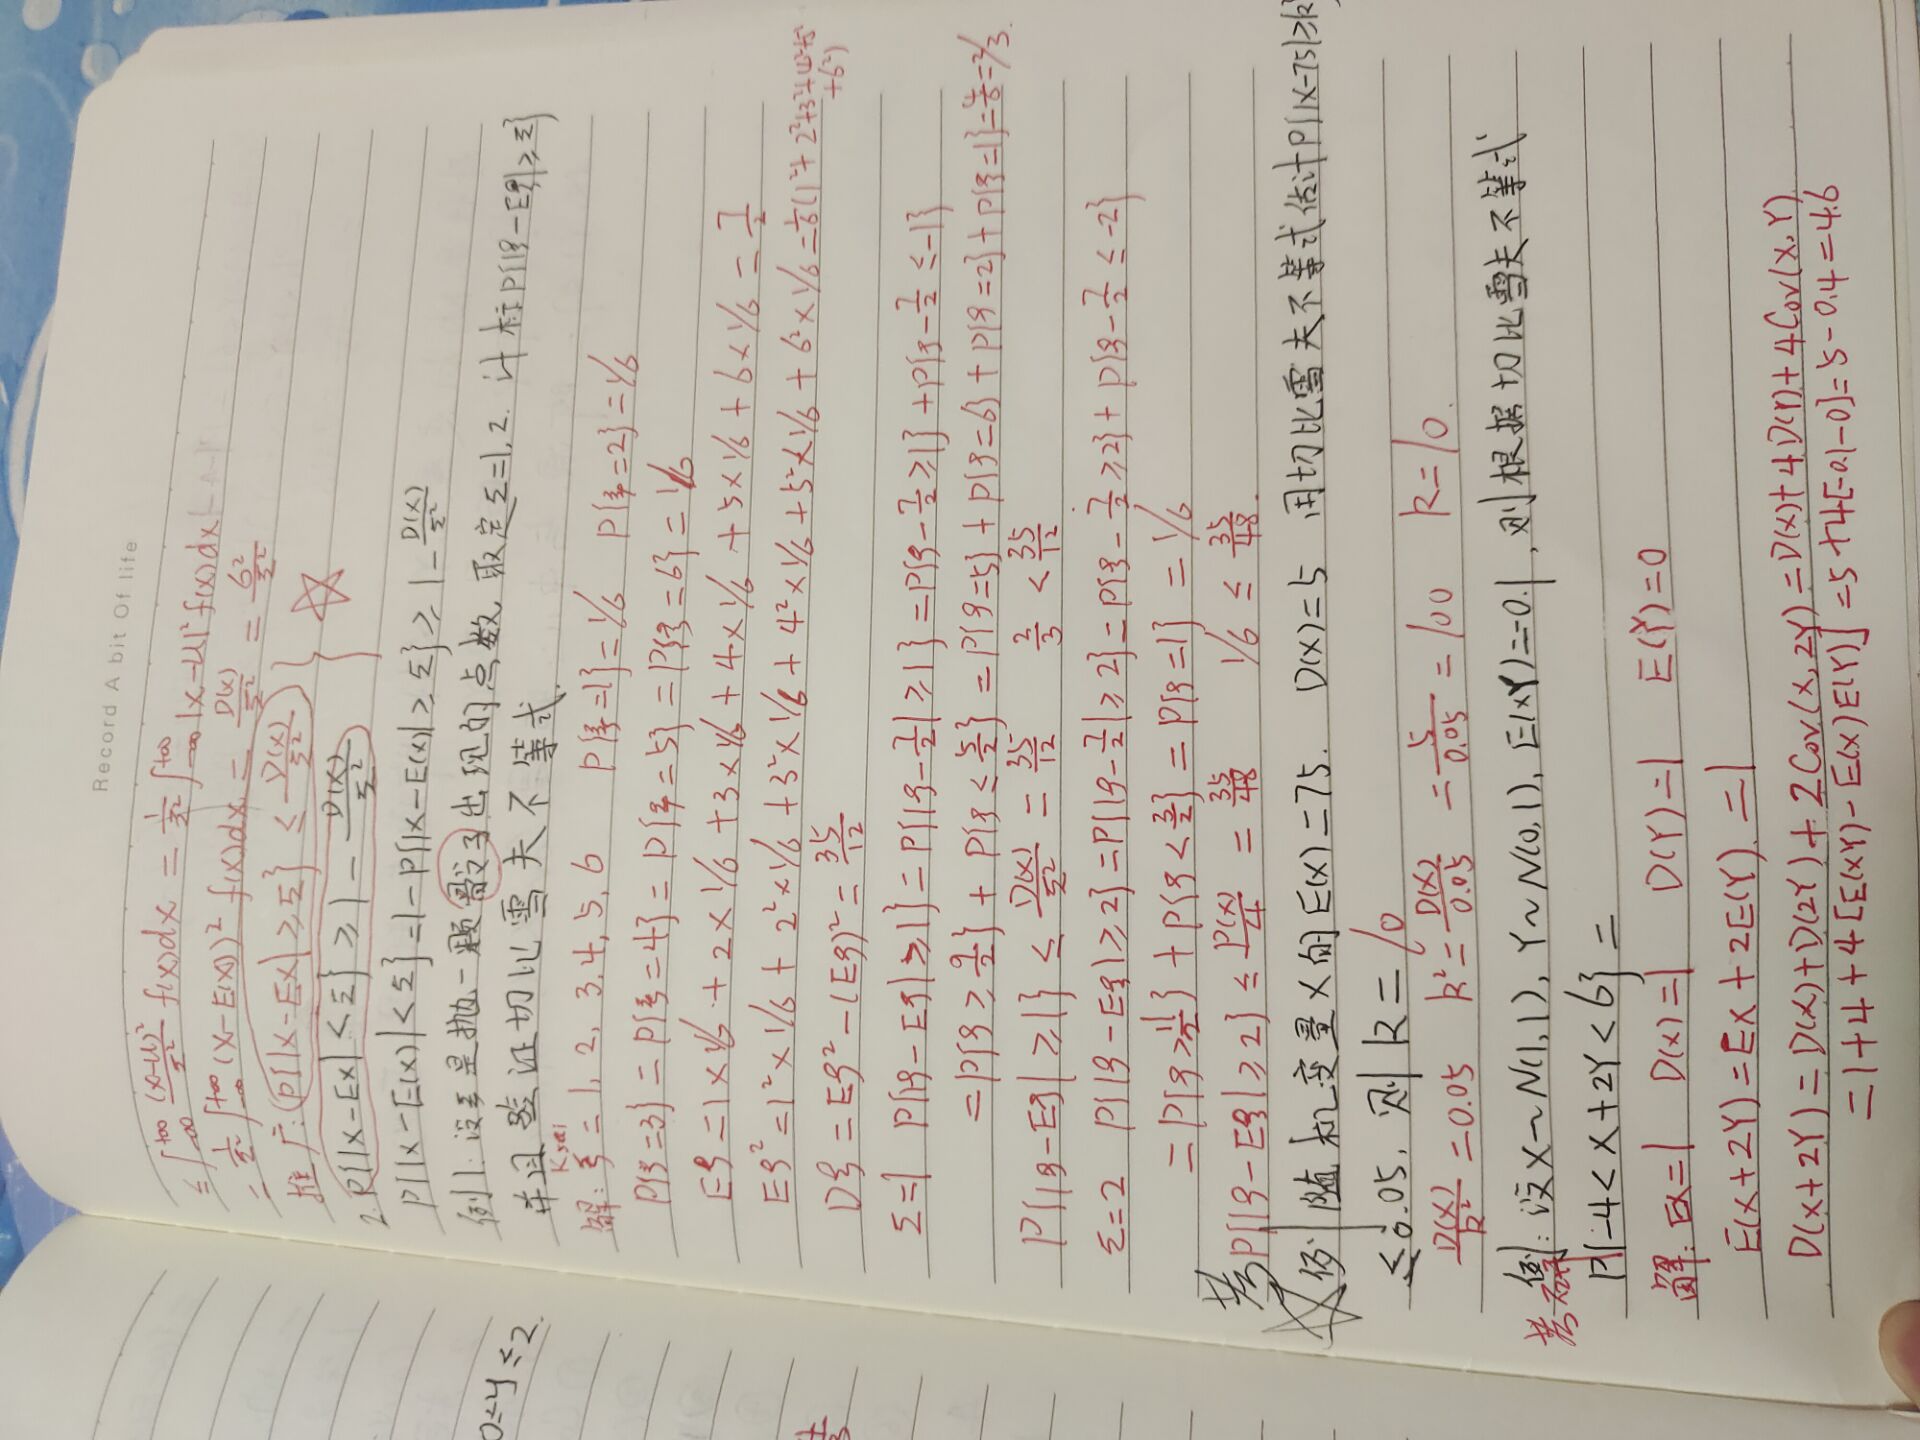 Record A bit Of life
≤ ∫_{-∞}^{+∞} (x-u)²/ε² f(x)dx = 1/ε² ∫_{-∞}^{+∞} |x-u|² f(x)dx
= 1/ε² ∫_{-∞}^{+∞} (x-E(x))² f(x)dx = D(x)/ε² = σ²/ε²
推广: P{|x-Ex|≥ε} < D(x)/ε²
2. P{|x-Ex|<ε} ≥ 1 - D(x)/ε²
P{|x-E(x)|<ε} = 1-P{|x-E(x)|≥ε} ≥ 1- D(x)/ε²
例1. 设ξ是抛一颗骰子出现的点数, 取定ε=1,2. 计标P{|ξ-Eξ|≥ε}
并且验证切比雪夫不等式.
Ksai
解: ξ=1, 2, 3, 4, 5, 6 P{ξ=1}=1/6 P{ξ=2}=1/6
P{ξ=3}=P{ξ=4}=P{ξ=5}=P{ξ=6}=1/6
Eξ=1×1/6+2×1/6+3×1/6+4×1/6+5×1/6+6×1/6=7/2
Eξ²=1²×1/6+2²×1/6+3²×1/6+4²×1/6+5²×1/6+6²×1/6=1/6(1²+2²+3²+4²+5²+6²)
Dξ=Eξ²-(Eξ)²=35/12
ε=1 P{|ξ-Eξ|≥1}=P{|ξ-7/2|≥1}=P{ξ-7/2≥1}+P{ξ-7/2≤-1}
=P{ξ≥9/2}+P{ξ≤5/2}=P{ξ=5}+P{ξ=6}+P{ξ=2}+P{ξ=1}=4/6=2/3.
P{|ξ-Eξ|≥1}< D(x)/ε² = 35/12 2/3 < 35/12
ε=2 P{|ξ-Eξ|≥2}=P{|ξ-7/2|≥2}=P{ξ-7/2≥2}+P{ξ-7/2≤-2}
=P{ξ≥11/2}+P{ξ<3/2}=P{ξ=1}=1/6
P{|ξ-Eξ|≥2}≤ D(x)/4 = 35/48 1/6 ≤ 35/48.
考
☆例 随机变量X的E(x)=75. D(x)=5 用切比雪夫不等式估计P{|x-75|≥k}
≤0.05. 则k=10
D(x)/k²=0.05 k²=D(x)/0.05 =5/0.05=100 k=10.
考研 例: 设X~N(1,1), Y~N(0,1), E(XY)=-0.1, 则根据切比雪夫不等式
P{-4<X+2Y<6}=
解: Ex=1 D(x)=1 D(Y)=1 E(Y)=0
E(x+2Y)=Ex+2E(Y)=1
D(x+2Y)=D(x)+D(2Y)+2Cov(x,2Y)=D(x)+4D(Y)+4Cov(X,Y)
=1+4+4[E(XY)-E(x)E(Y)]=5+4[-0.1-0]=5-0.4=4.6
0≤y≤2.